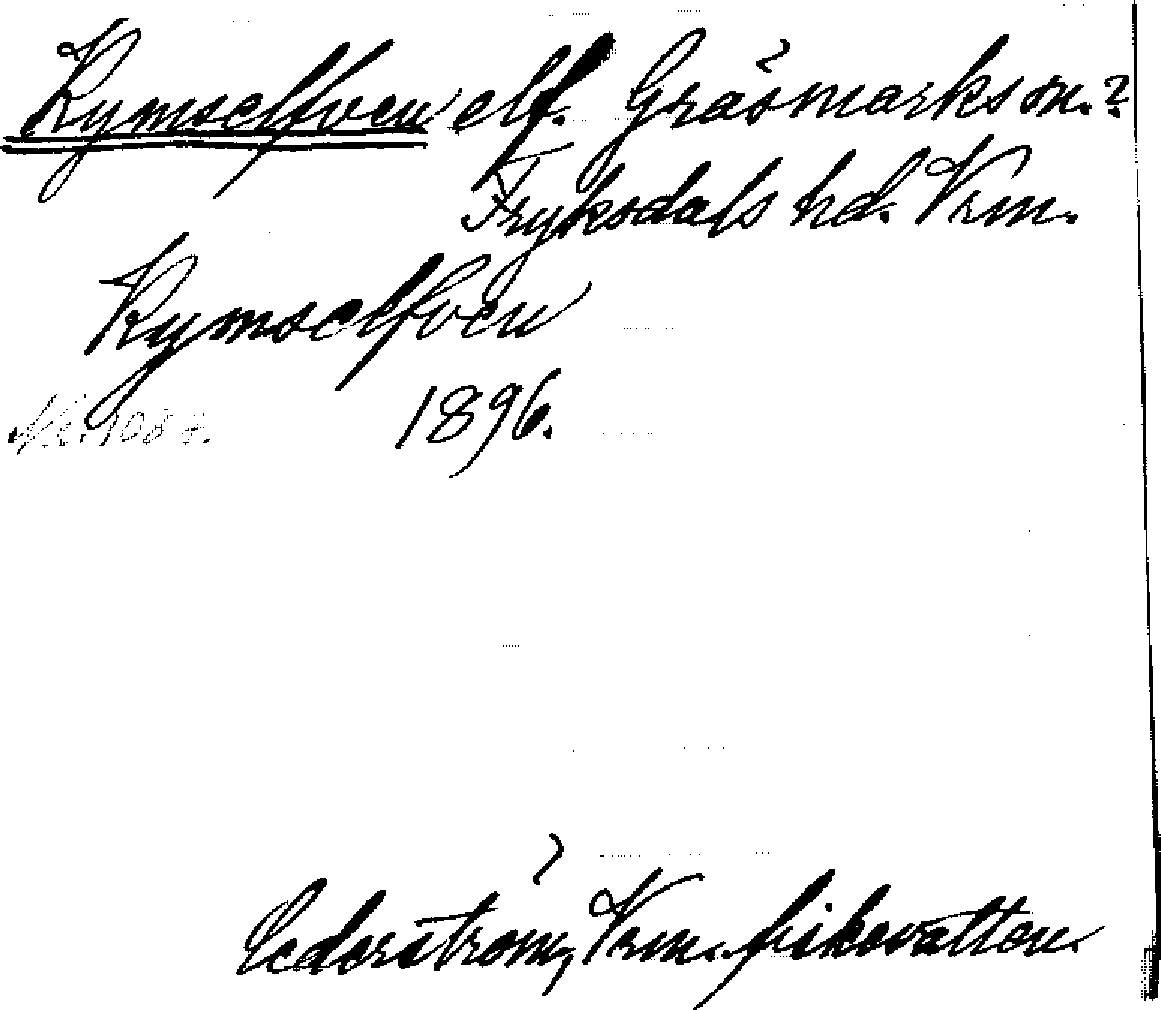 Kymselfven elf. Gräsmarks sn.?
Fryksdals hd. Vrm.
Kymselfven
1896.
Cederström, Vrm. fiskevatten.